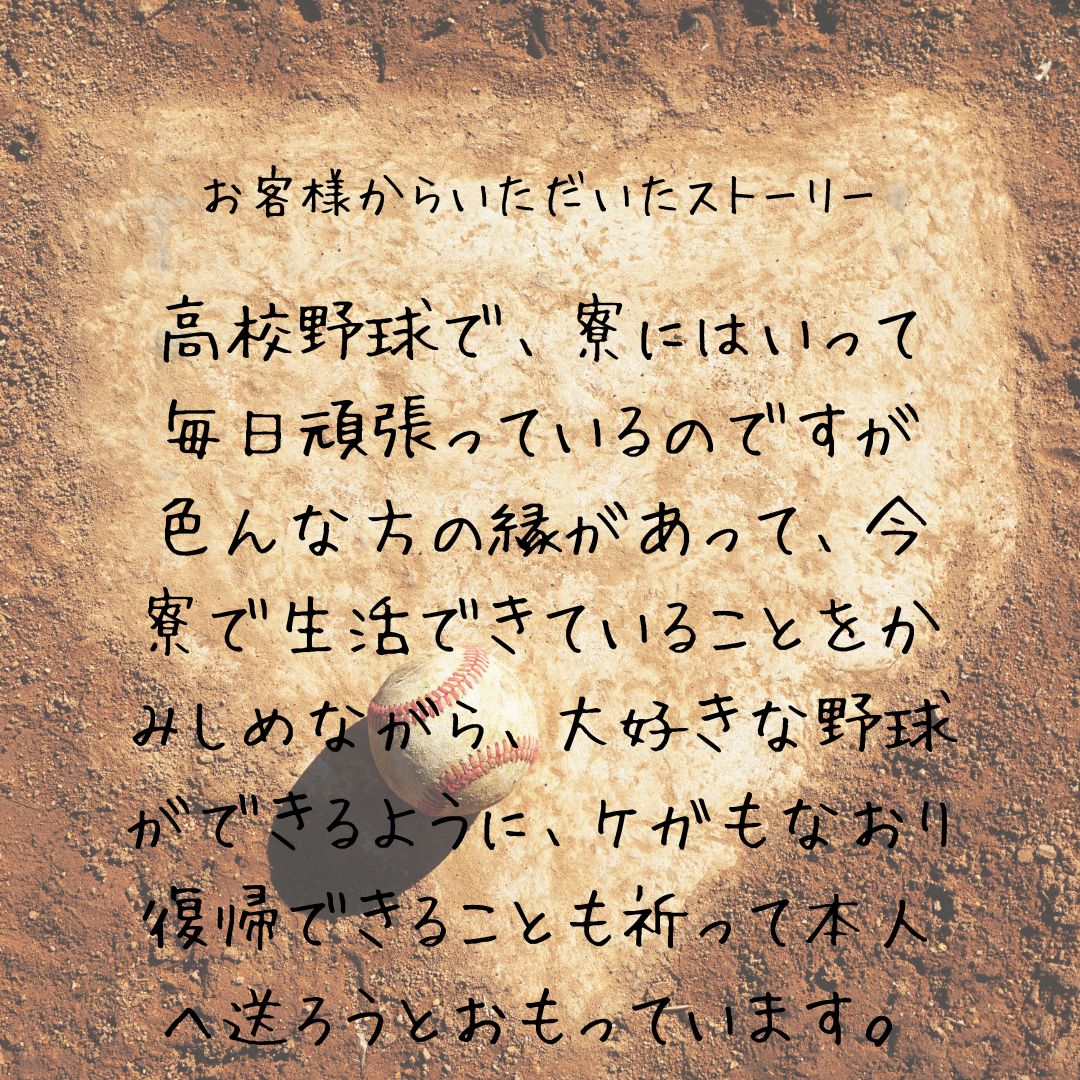 お客様からいただいたストーリー
高校野球で、寮にはいって
毎日頑張っているのですが
色んな方の縁があって、今
寮で生活できていることをか
みしめながら、大好きな野球
ができるように、ケガもなおり
復帰できることも祈って本人
へ送ろうとおもっています。